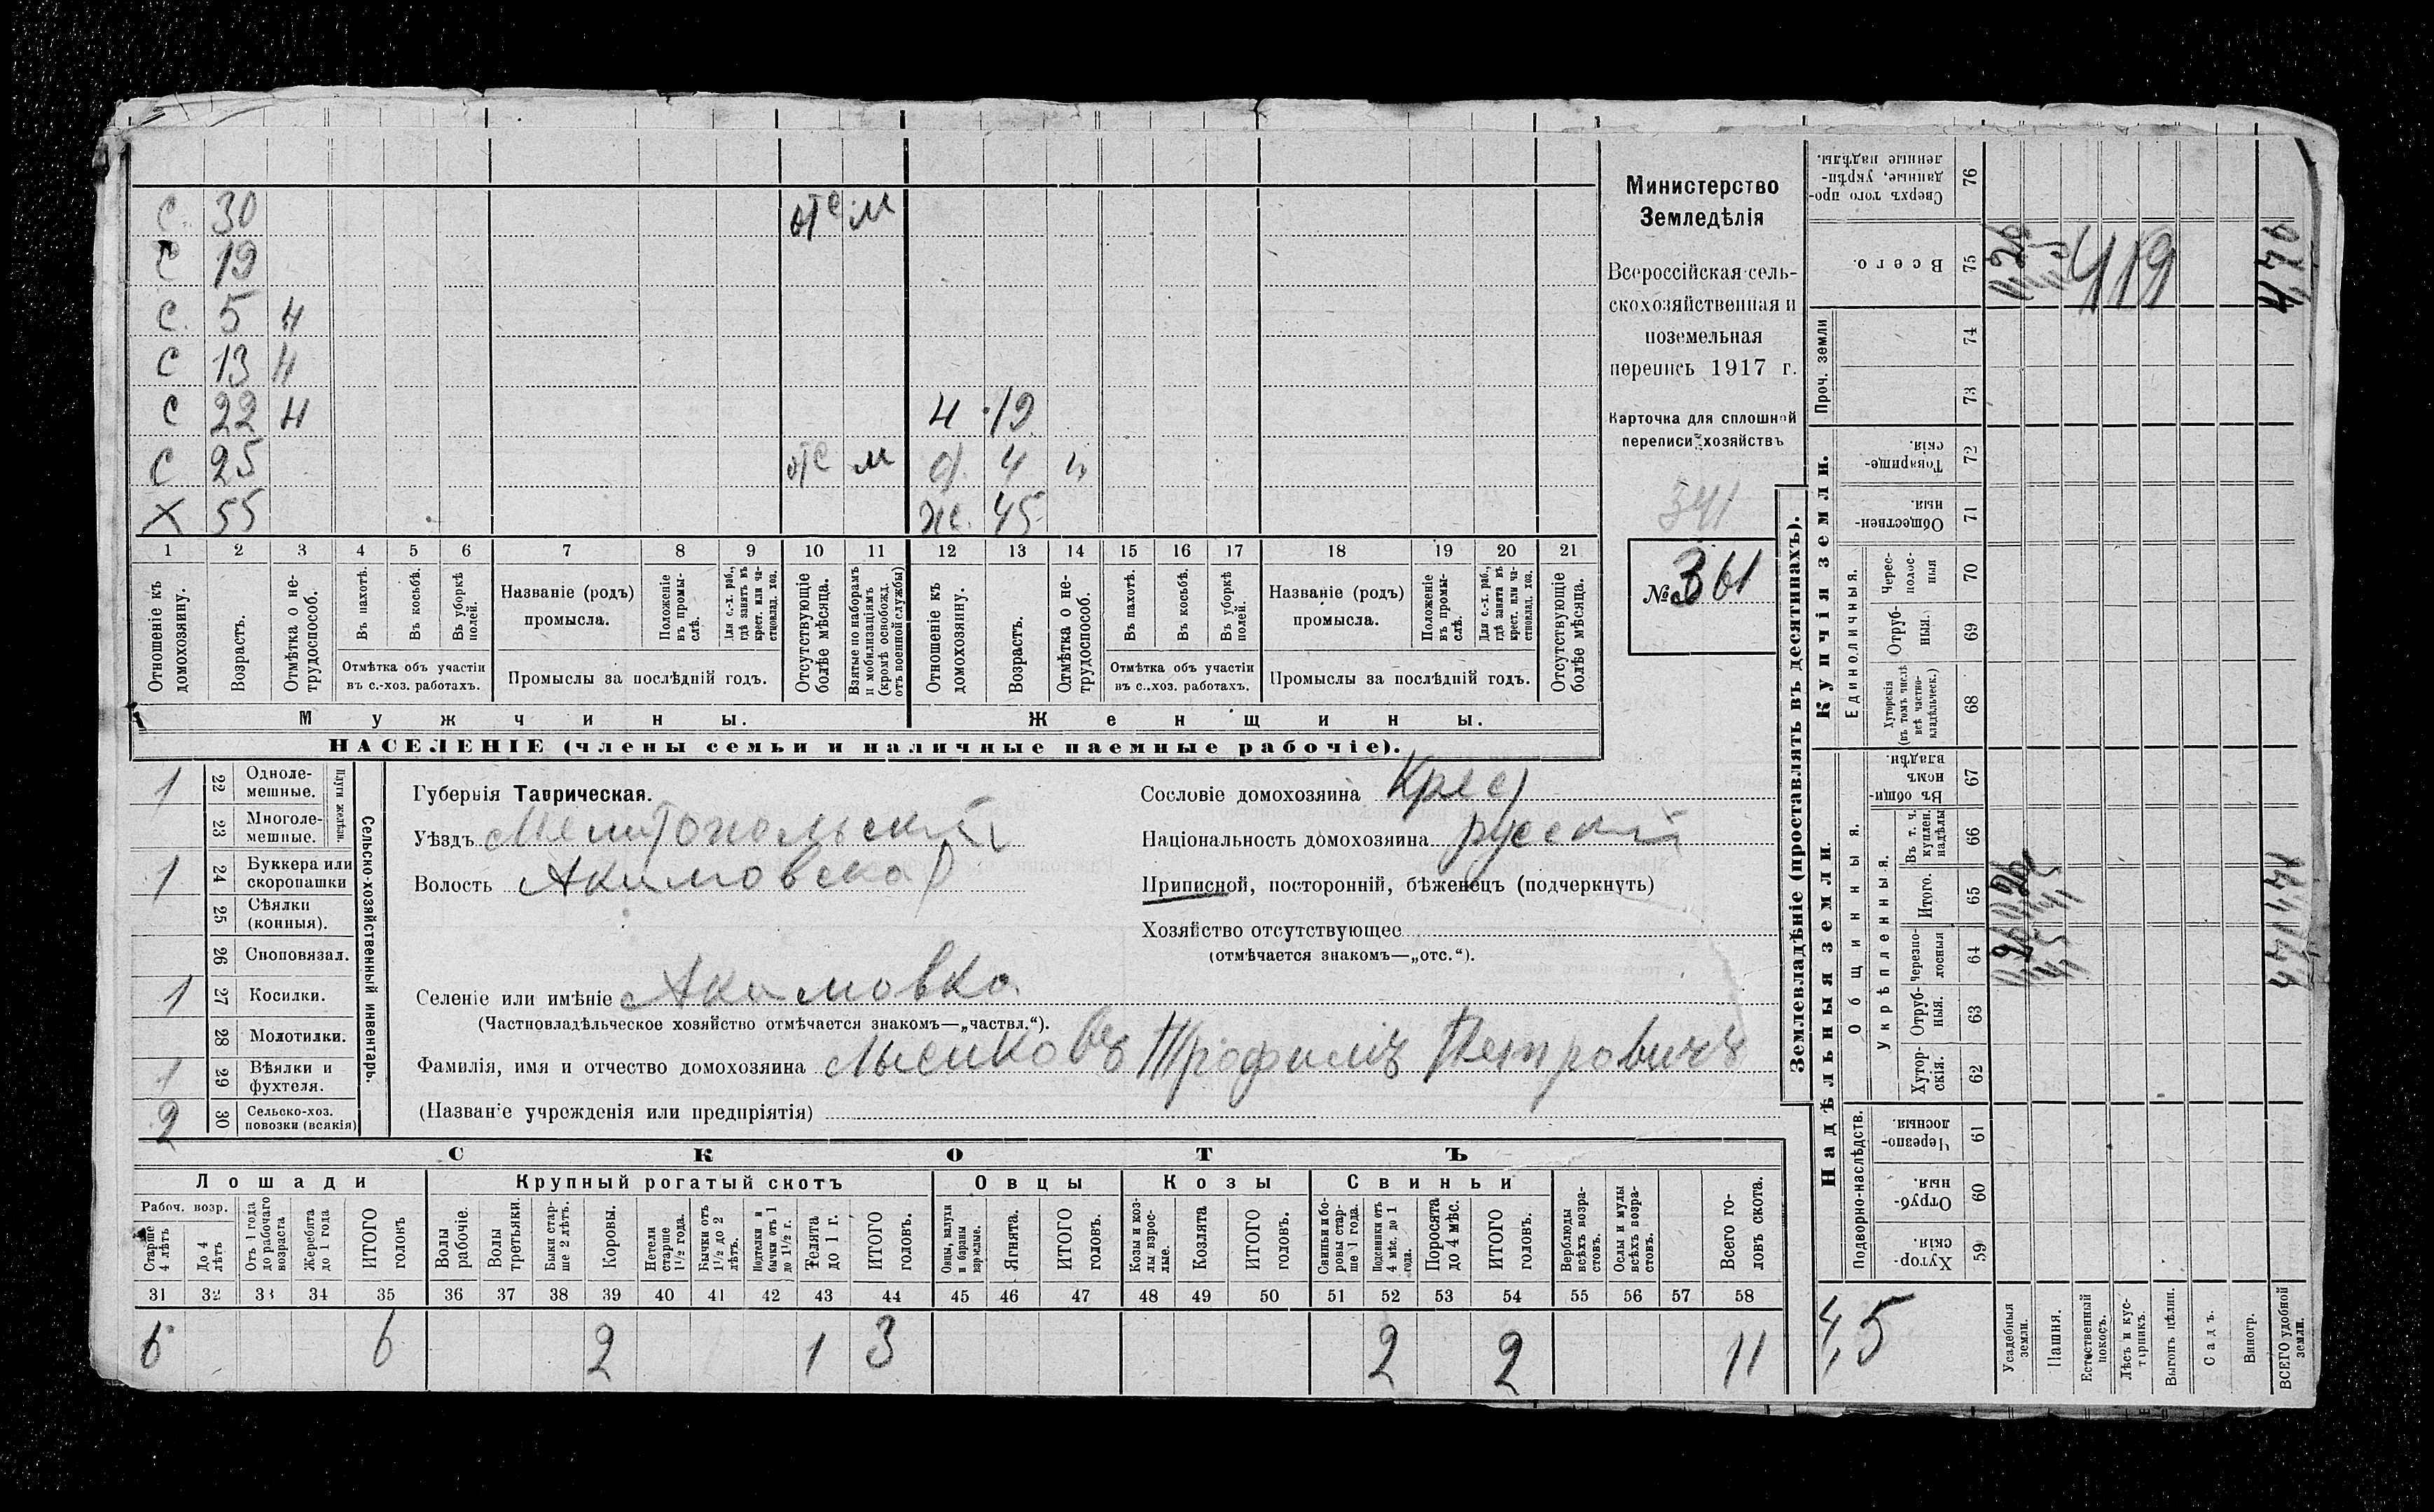 С. 30 отс м
С 19
С. 5 н
С 13 н
С 22 н Н 19
С 25 отс м д. 4 н
Х 55 Ж. 45
1 2 3 4 5 6 7 8 9 10 11 12 13 14 15 16 17 18 19 20 21
Отношеніе къ домохозяину.
Возрастъ.
Отмѣтка о не-трудоспособ.
Въ пахотѣ.
Въ косьбѣ.
Въ уборкѣ полей.
Отмѣтка объ участіи
въ с.-хоз. работахъ.
Названіе (родъ)
промысла.
Положеніе въ промы-слѣ.
Для с.-х. раб., гдѣ занятъ въ крест. или ча-стновлад. хоз.
Промыслы за послѣдній годъ.
Отсутствующіе болѣе мѣсяца.
Взятые по наборамъ и мобилизаціямъ (кромѣ освобожд. отъ военной службы)
Отношеніе къ домохозяину.
Возрастъ.
Отмѣтка о не-трудоспособ.
Въ пахотѣ.
Въ косьбѣ.
Въ уборкѣ полей.
Отмѣтка объ участіи
въ с.-хоз. работахъ.
Названіе (родъ)
промысла.
Положеніе въ промы-слѣ.
Для с.-х. раб., гдѣ занятъ въ крест. или ча-ствовлад. хоз.
Промыслы за послѣдній годъ.
Отсутствующіе болѣе мѣсяца.
Мужчины. Женщины.
НАСЕЛЕНІЕ (члены семьи и наличные наемные рабочіе).
Министерство
Земледѣлія
Всероссійская сель-
скохозяйственная и
поземельная
перепись 1917 г.
Карточка для сплошной
переписи хозяйствъ
341
№ 361
Сельско-хозяйственный инвентарь.
Плуги желѣзн.
1 22 Одноле-мешные.
23 Многоле-мешные.
1 24 Буккера или скоропашки
25 Сѣялки (конныя).
26 Сноповязал.
1 27 Косилки.
28 Молотилки.
1 29 Вѣялки и фухтеля.
2 30 Сельско-хоз. повозки (всякія)
Губернія Таврическая.
Уѣздъ Мелитопольскій
Волость Акимовская
Селеніе или имѣніе Акимовка
(Частновладѣльческое хозяйство отмѣчается знакомъ—„частвл.“).
Сословіе домохозяина Крест
Національность домохозяина русскій
Приписной, посторонній, бѣженецъ (подчеркнуть)
Хозяйство отсутствующее
(отмѣчается знакомъ—„отс.“).
Фамилія, имя и отчество домохозяина Лысиковъ Трофимъ Петровичъ
(Названіе учрежденія или предпріятія)
СКОТЪ
Лошади Крупный рогатый скотъ Овцы Козы Свиньи
Рабоч. возр.
Старше 4 лѣтъ
До 4 лѣтъ
Отъ 1 года до рабочаго возраста
Жеребята до 1 года
ИТОГО головъ
Волы рабочіе.
Волы третьяки.
Быки стар-ше 2 лѣтъ.
Коровы.
Нетели старше 1½ года.
Бычки отъ 1½ до 2 лѣтъ.
Подтелки и бычки отъ 1 до 1½ г.
Телята до 1 г.
ИТОГО головъ.
Овцы, валухи и бараны взрослые.
Ягнята.
ИТОГО головъ.
Козы и коз-лы взрос-лые.
Козлята
ИТОГО головъ.
Свиньи и бо-ровы стар-ше 1 года.
Подсвинки отъ 4 мѣс. до 1 года.
Поросята до 4 мѣс.
ИТОГО головъ.
Верблюды всѣхъ возра-стовъ.
Ослы и мулы всѣхъ возра-стовъ.
Всего го-ловъ скота.
31 32 33 34 35 36 37 38 39 40 41 42 43 44 45 46 47 48 49 50 51 52 53 54 55 56 57 58
6 6 2 1 3 2 2 11
Землевладѣніе (проставлять въ десятинахъ).
Сверхъ того про-данные, укрѣп-ленные надѣлы. 76
Всего. 75 4,19 4,70
Проч. земли 74 73
Купчія земли.
Товарище-скія. 72
Обществен-ныя. 71
Единоличныя.
Черес-полос-ныя 70
Отруб-ныя. 69
Хуторскія (въ томъ числѣ всѣ частно-владѣльческ.) 68
Надѣльныя земли.
Общинныя.
Въ общин-номъ владѣн. 67
Укрѣпленныя.
Въ т. ч. куплен. надѣлы 66
Итого. 65
Черезпо-лосныя 64
Отруб-ныя. 63
Хутор-скія. 62
Подворно-наслѣдств.
Черезпо-лосныя. 61
Отруб-ныя. 60
Хутор-скія. 59
4,5
Усадебныя земли.
Пашня.
Естественный покосъ.
Лѣсъ и кус-тарникъ.
Выгонъ цѣлин.
Садъ.
Виногр.
ВСЕГО удобной земли.